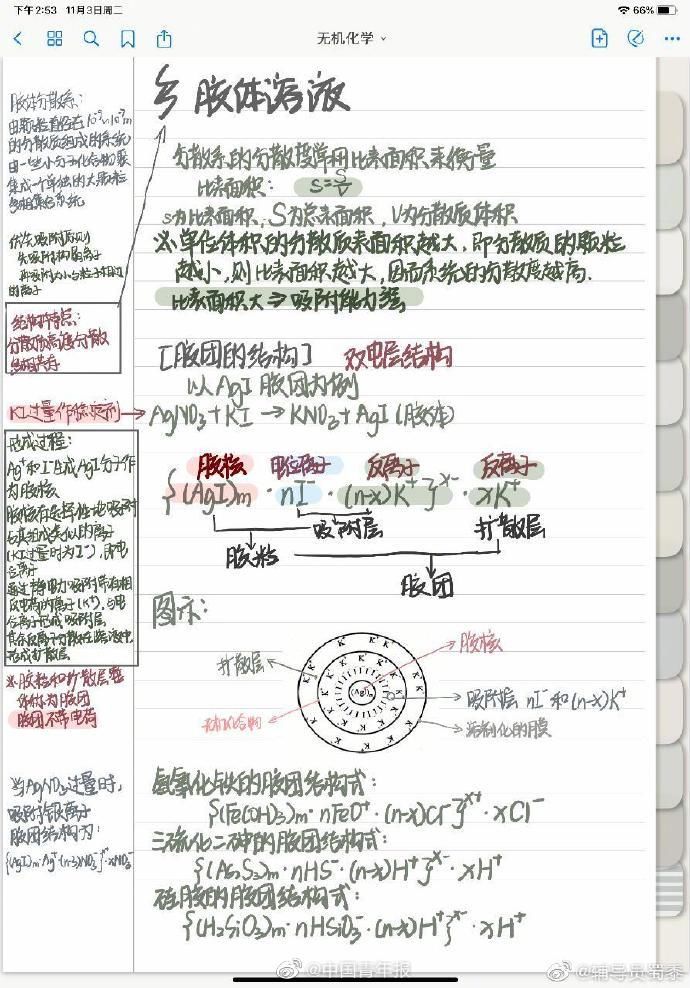 下午2:53 11月3日周二
66%
无机化学
胶体溶液
胶体分散系:
由颗粒直径在10⁻⁹~10⁻⁷m
的分散质组成的系统
由一些小分子化合物聚
集成一个单独的大颗粒
多相集合系统
优先吸附原则
先吸附构晶离子
的离子
结构特点:
分散质高度分散
KI过量作稳定剂
形成过程:
Ag⁺和I⁻生成AgI分子作
为胶核
胶核有选择性地吸附
与其组成类似的离子
(KI过量时为I⁻),即电
位离子
通过静电力吸附带有相
反电荷的离子(K⁺),与电
位离子形成吸附层
其余反离子分散在溶液中
形成扩散层
※胶粒和扩散层整
体称为胶团
胶团不带电荷
当AgNO₃过量时,
吸附银离子
胶团结构为:
{(AgI)m·Ag⁺·(n-x)NO₃⁻}ˣ⁺·xNO₃⁻
分散系的分散度常用比表面积来衡量
比表面积: S=S/V
s为比表面积,S为总表面积,V为分散质体积
※单位体积的分散质表面积越大,即分散质的颗粒
越小,则比表面积越大,因而系统的分散度越高.
比表面积大⇒吸附能力强
[胶团的结构] 双电层结构
以AgI胶团为例
AgNO₃+KI→KNO₃+AgI(胶体)
胶核 电位离子 反离子 反离子
{(AgI)m·nI⁻·(n-x)K⁺}ˣ⁻·xK⁺
吸附层 扩散层
胶粒
胶团
图示:
胶核
扩散层
(AgI)
吸附层 nI⁻和(n-x)K⁺
溶剂化的膜
氢氧化铁的胶团结构式:
{(Fe(OH)₃)m·nFeO⁺·(n-x)Cl⁻}ˣ⁺·xCl⁻
三硫化二砷的胶团结构式:
{(As₂S₃)m·nHS⁻·(n-x)H⁺}ˣ⁻·xH⁺
硅胶的胶团结构式:
{(H₂SiO₃)m·nHSiO₃⁻·(n-x)H⁺}ˣ⁻·xH⁺
@中国青年报
@辅导员蜀黍